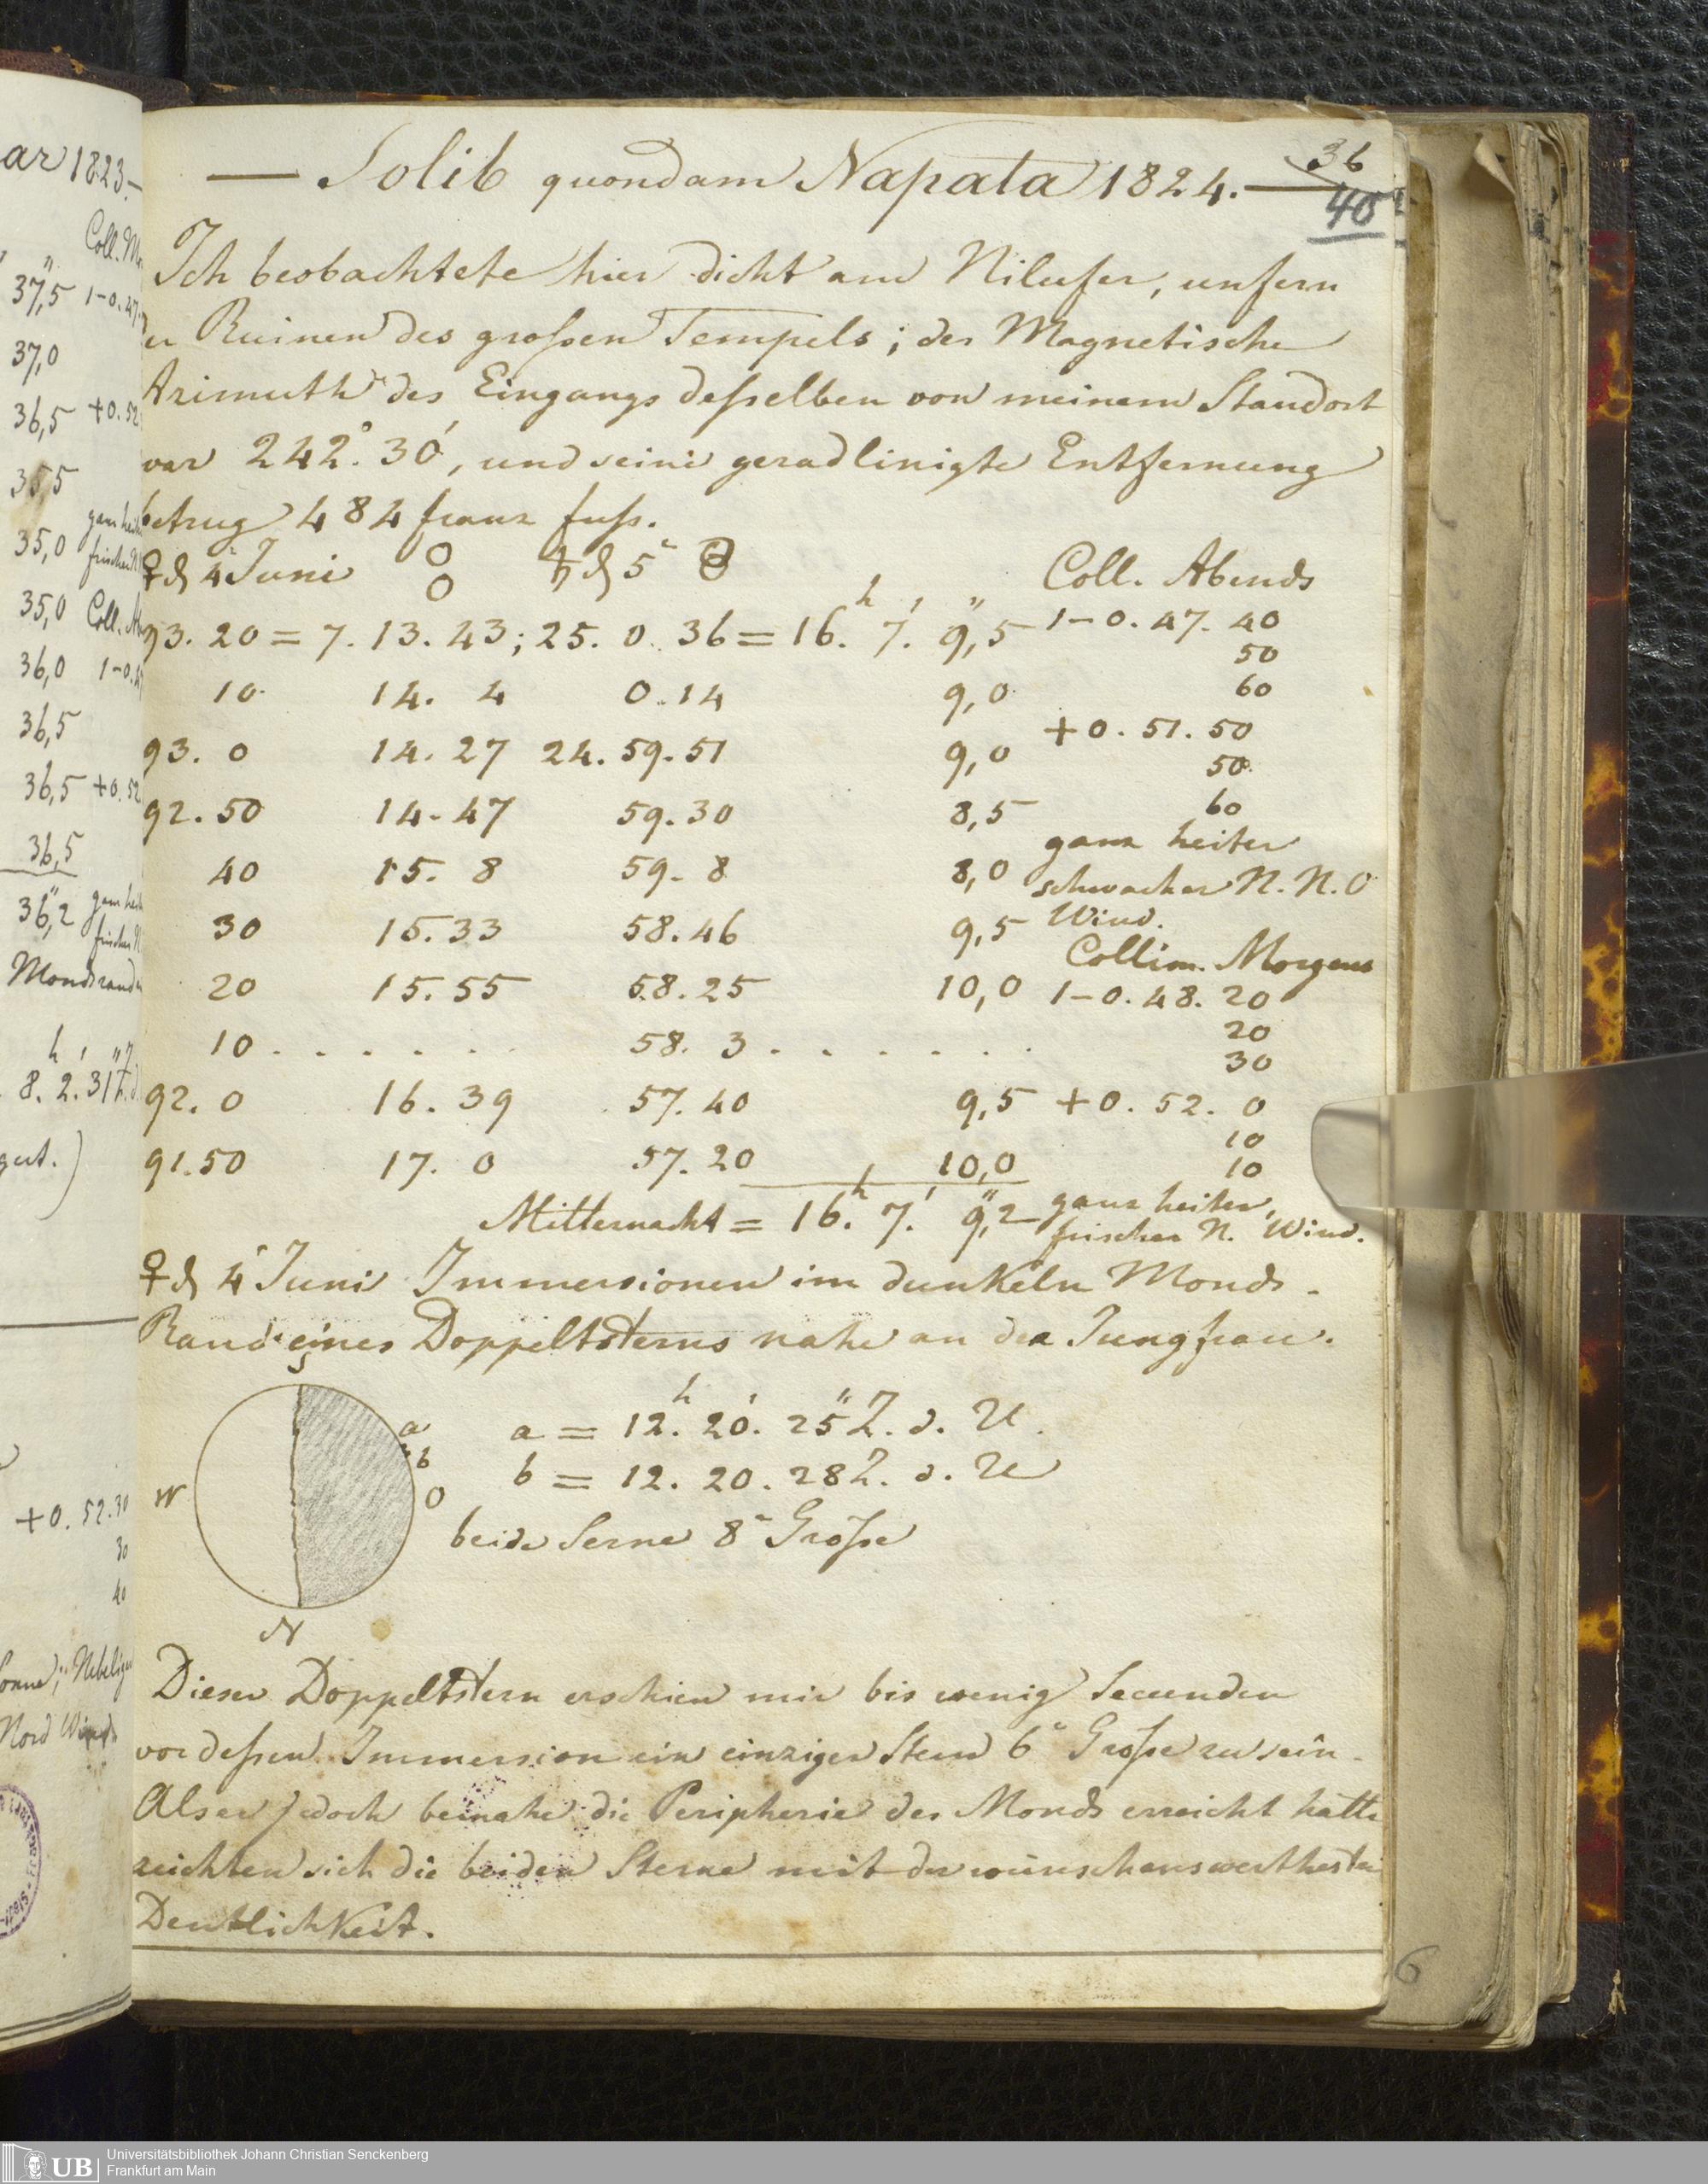 ar 1823.—
Coll. M
37,5 1-0.47
37,0
36,5 +0.52
35,5
35,0
35,0 Coll.
36,0 1-0.
36,5
36,5 +0.52
36,5
36,2
Mondsrand
h ' "
8. 2. 31
gut.)
+0. 52.30
30
40
Nebelig
Nord Wind
— Solib quondam Napata 1824. —
36
40
Ich beobachtete hier dicht am Nilufer, unfern
er Ruinen des großen Tempels; der Magnetische
Azimuth des Eingangs deßelben von meinem Standort
war 242°. 30', und seine geradlinigte Entfernung
betrug 484 franz fuß.
♀ d 4n Juni ♄ d 5n Coll. Abends
93. 20 = 7. 13. 43; 25. 0. 36 = 16.h 7.' 9,"5 1-0. 47. 40
50
10 14. 4 0. 14 9,0 60
93. 0 14. 27 24. 59. 51 9,0 +0. 51. 50
50
92. 50 14. 47 59. 30 8,5 60
ganz heiter
40 15. 8 59. 8 8,0 schwacher N. N. O
30 15. 33 58. 46 9,5 Wind.
Collim. Morgens
20 15. 55 58. 25 10,0 1-0. 48. 20
20
10 . . . . . . 58. 3 . . . . . . 30
92. 0 16. 39 57. 40 9,5 +0. 52. 0
10
91. 50 17. 0 57. 20 10,0 10
Mitternacht = 16.h 7.' 9,"2 ganz heiter,
frischer N. Wind.
♀ d 4n Juni Immersionen im dunkeln Monds
Rand eines Doppeltsterns nahe an der Jungfrau.
S
a
b
W
O
N
a = 12.h 20.' 25" Z. d. U.
b = 12. 20. 28 Z. d. U
beide Serne 8n Große
Dieser Doppeltstern erschien mir bis wenig Secunden
vor deßen Immersion ein einziger Stern 6n Große zu sein.
Als er jedoch beinahe die Peripherie des Monds erreicht hatte
zeichten sich die beiden Sterne mit der wünschenswerthesten
Deutlichkeit.
6
UB
Universitätsbibliothek Johann Christian Senckenberg
Frankfurt am Main